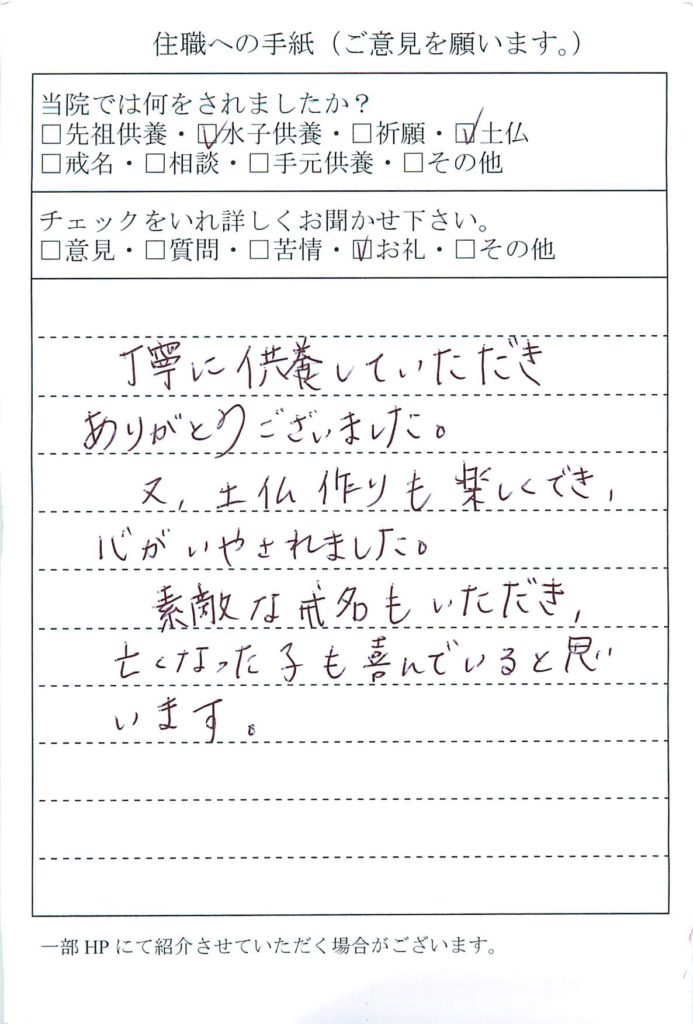 住職への手紙（ご意見を願います。）
当院では何をされましたか？
□先祖供養・☑水子供養・□祈願・☑土仏
□戒名・□相談・□手元供養・□その他
チェックをいれ詳しくお聞かせ下さい。
□意見・□質問・□苦情・☑お礼・□その他
丁寧に供養していただき
ありがとうございました。
又、土仏作りも楽しくでき、
心がいやされました。
素敵な戒名もいただき、
亡くなった子も喜んでいると思い
います。
一部HPにて紹介させていただく場合がございます。